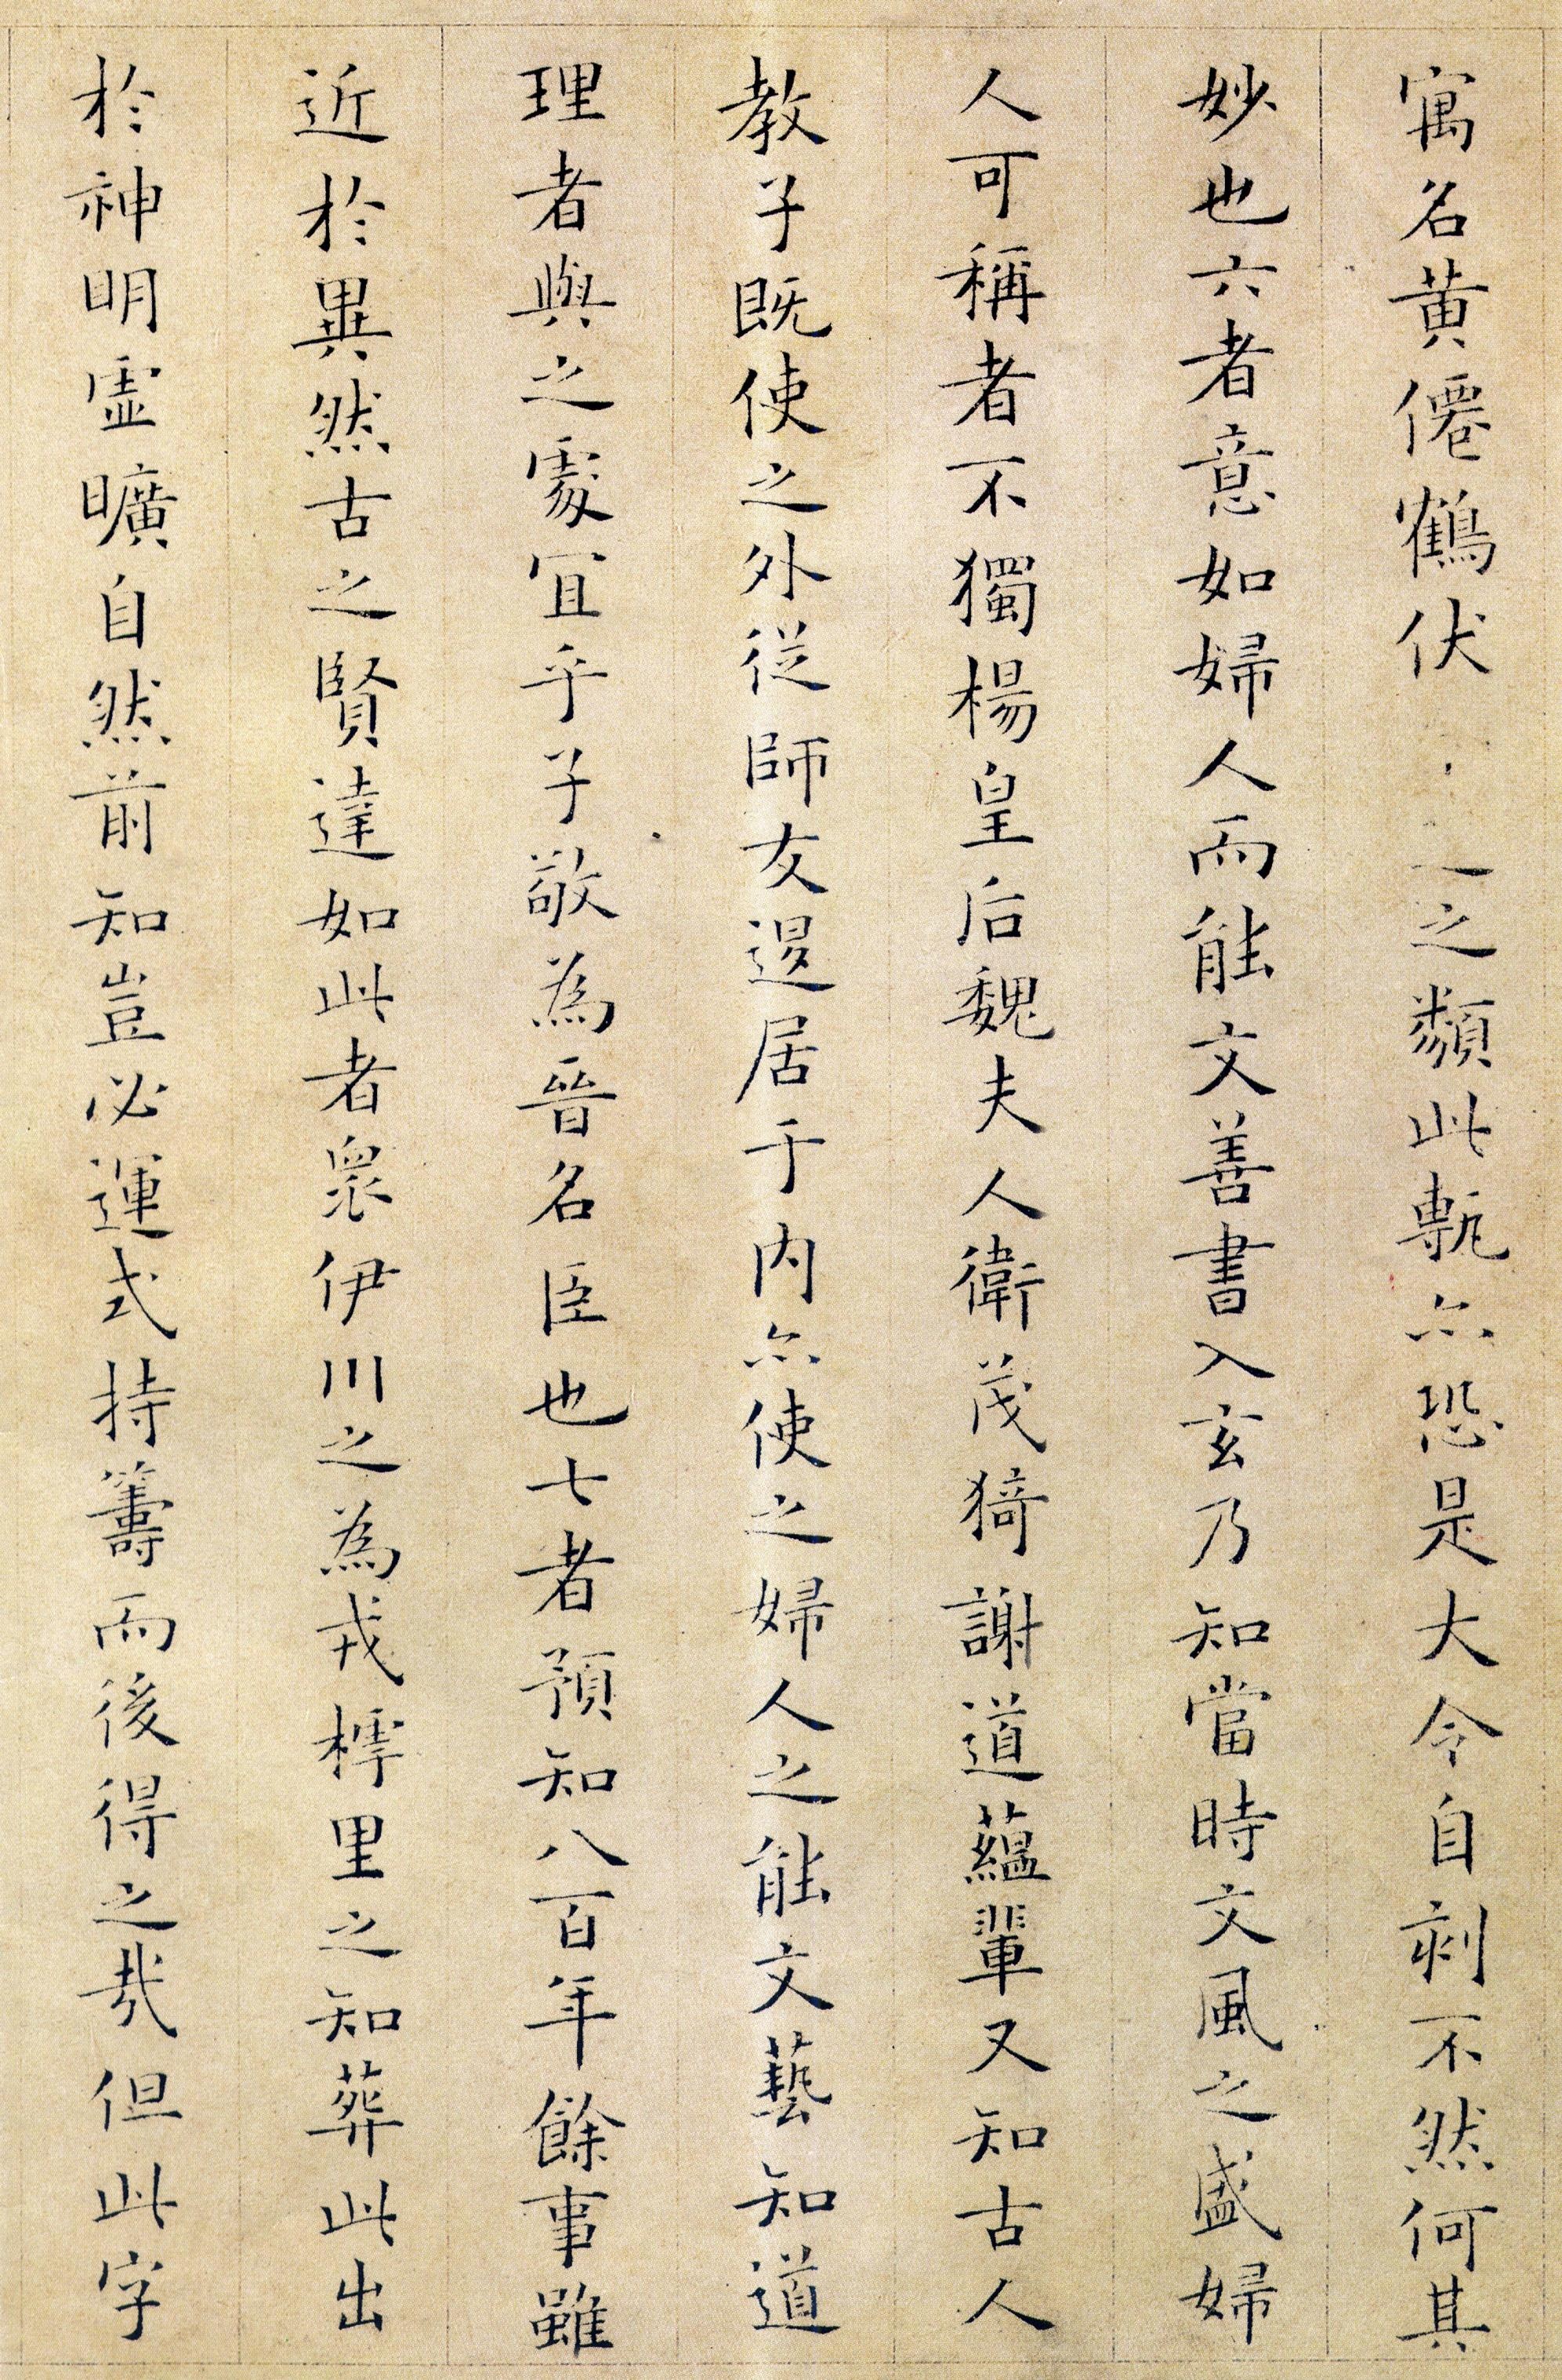 寓名黄僊鶴伏之類此甎亦恐是大令自刻不然何其
妙也六者意如婦人而能文善書入玄乃知當時文風之盛婦
人可稱者不獨楊皇后魏夫人衛茂猗謝道蘊輩又知古人
教子既使之外從師友退居于内亦使之婦人之能文藝知道
理者與之處宜乎子敬為晉名臣也七者預知八百年餘事雖
近於異然古之賢達如此者衆伊川之為戎樗里之知葬此出
於神明虛曠自然前知豈必運式持籌而後得之哉但此字